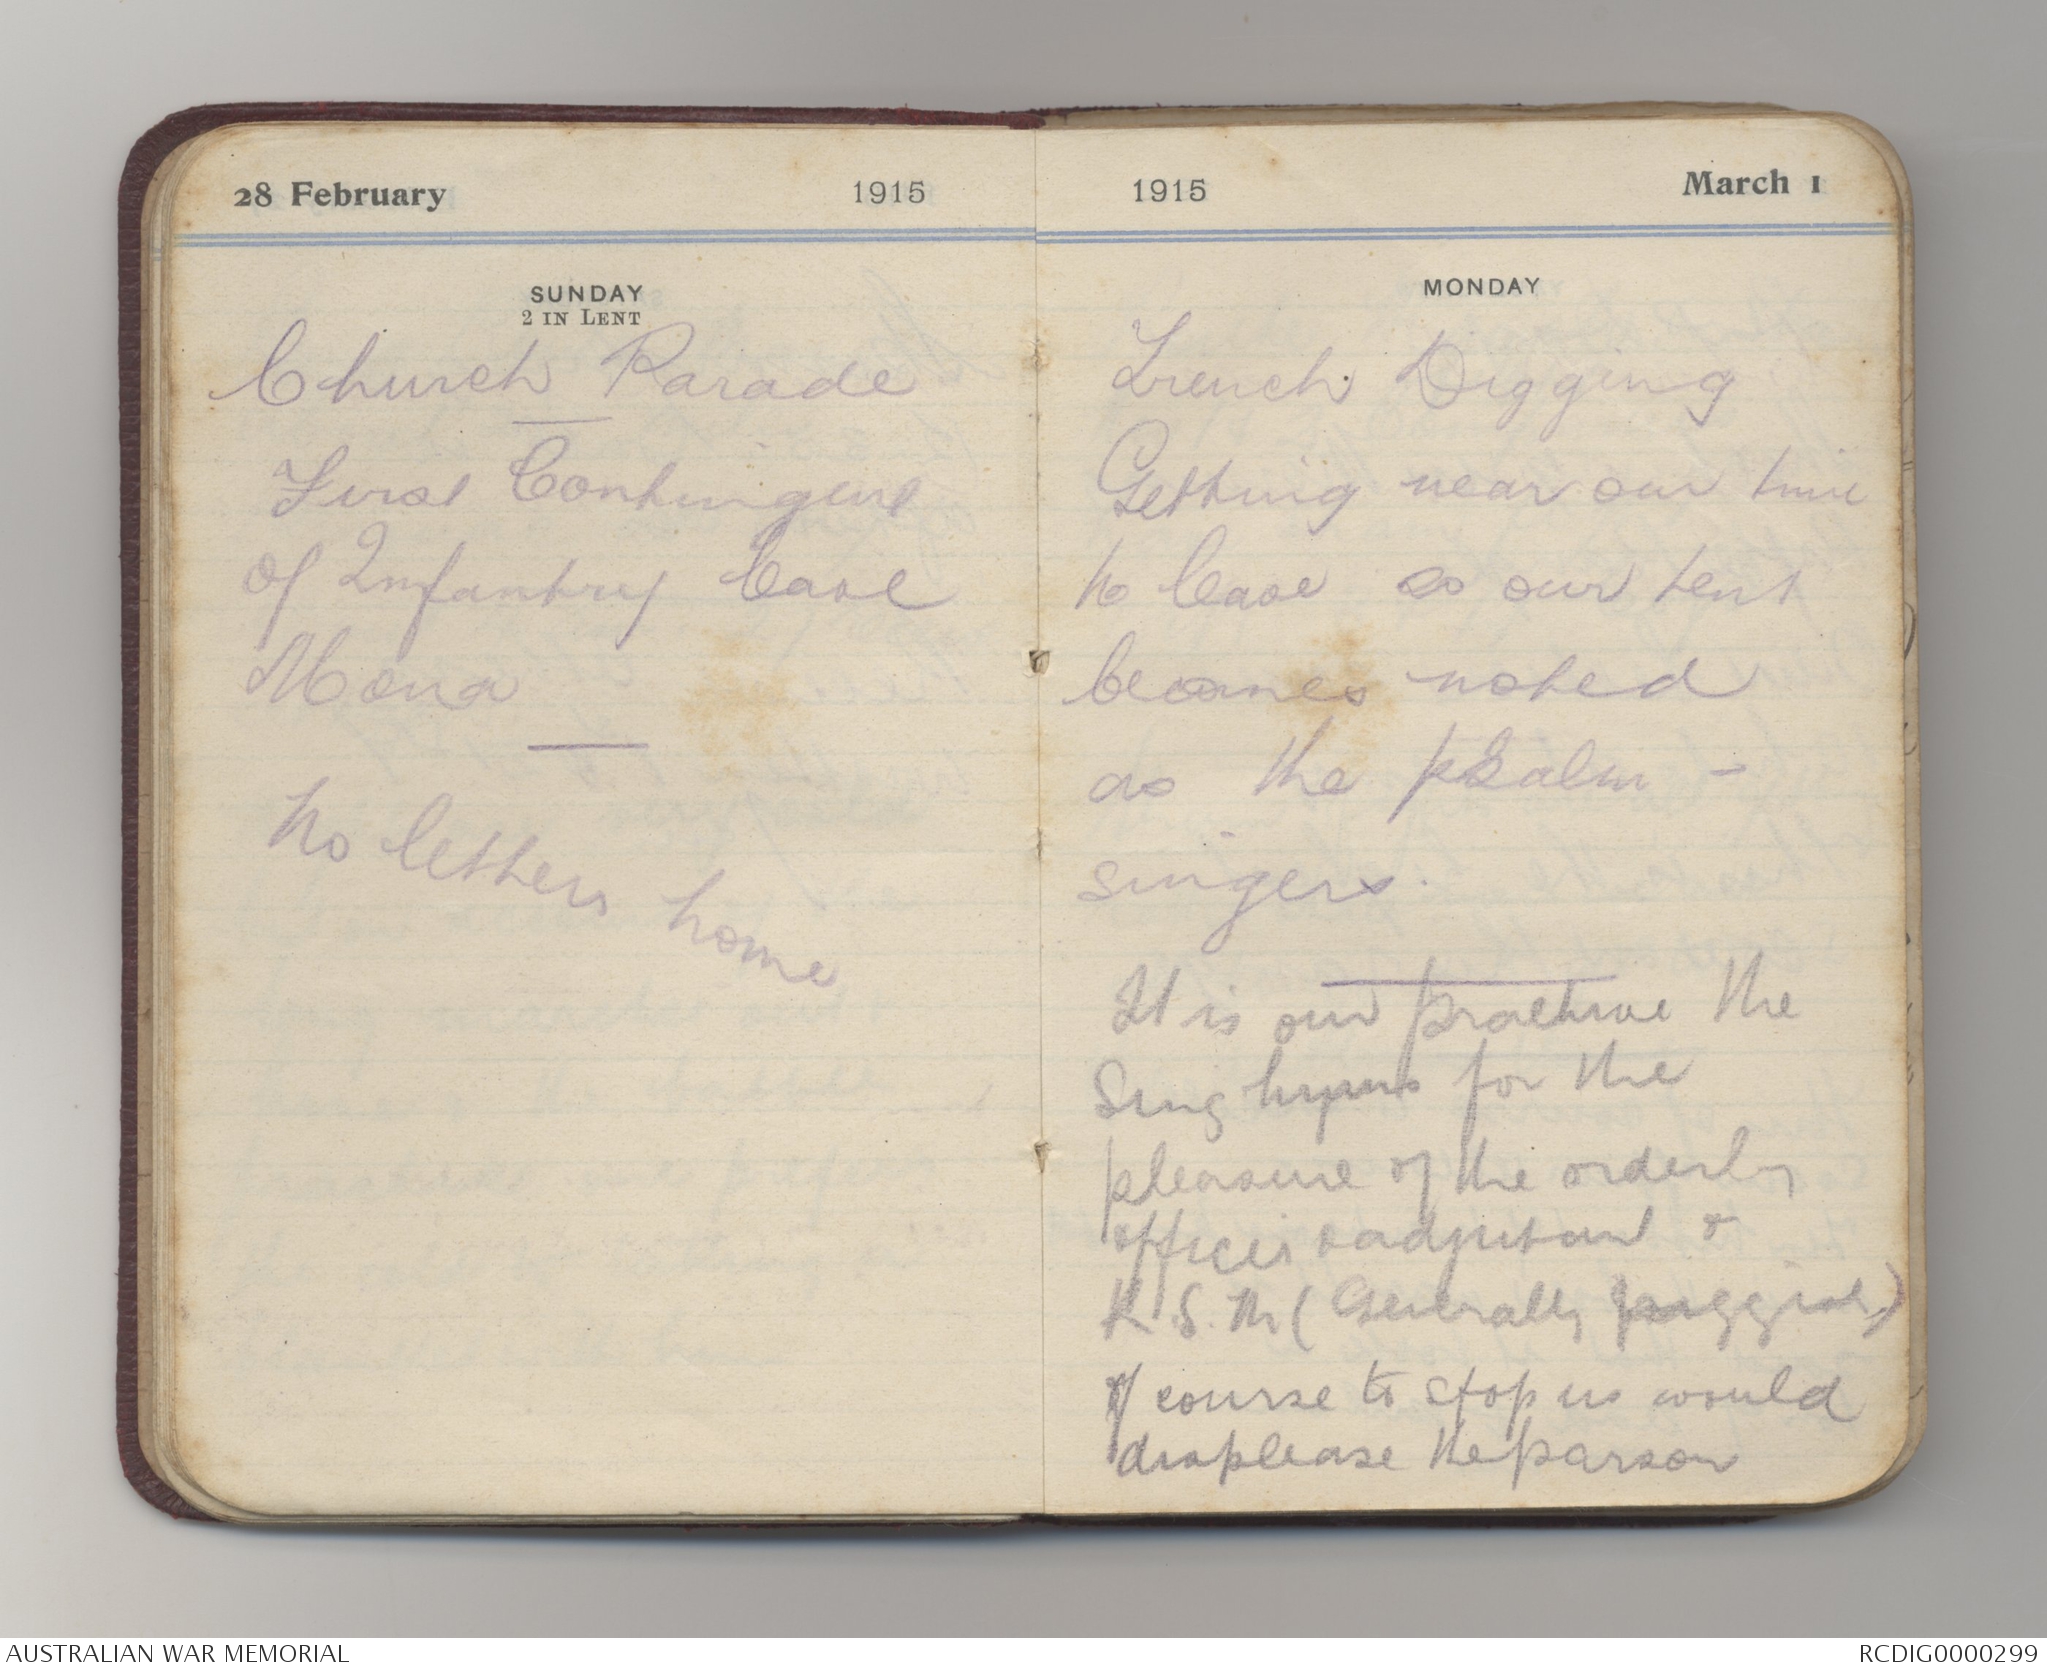 28 February 1915
SUNDAY
2 IN LENT
Church Parade
First Contingent
of Infantry leave
Mena
No letters home
1915 March 1
MONDAY
Trench Digging
Getting near our time
to leave so our tent
becomes noted
as the psalm -
singers.
It is our practice the
Sing hymns for the
pleasure of the orderly
officer & adjutant &
R. S. M (Generally
of course to stop us would
displease the parson
AUSTRALIAN WAR MEMORIAL RCDIG0000299